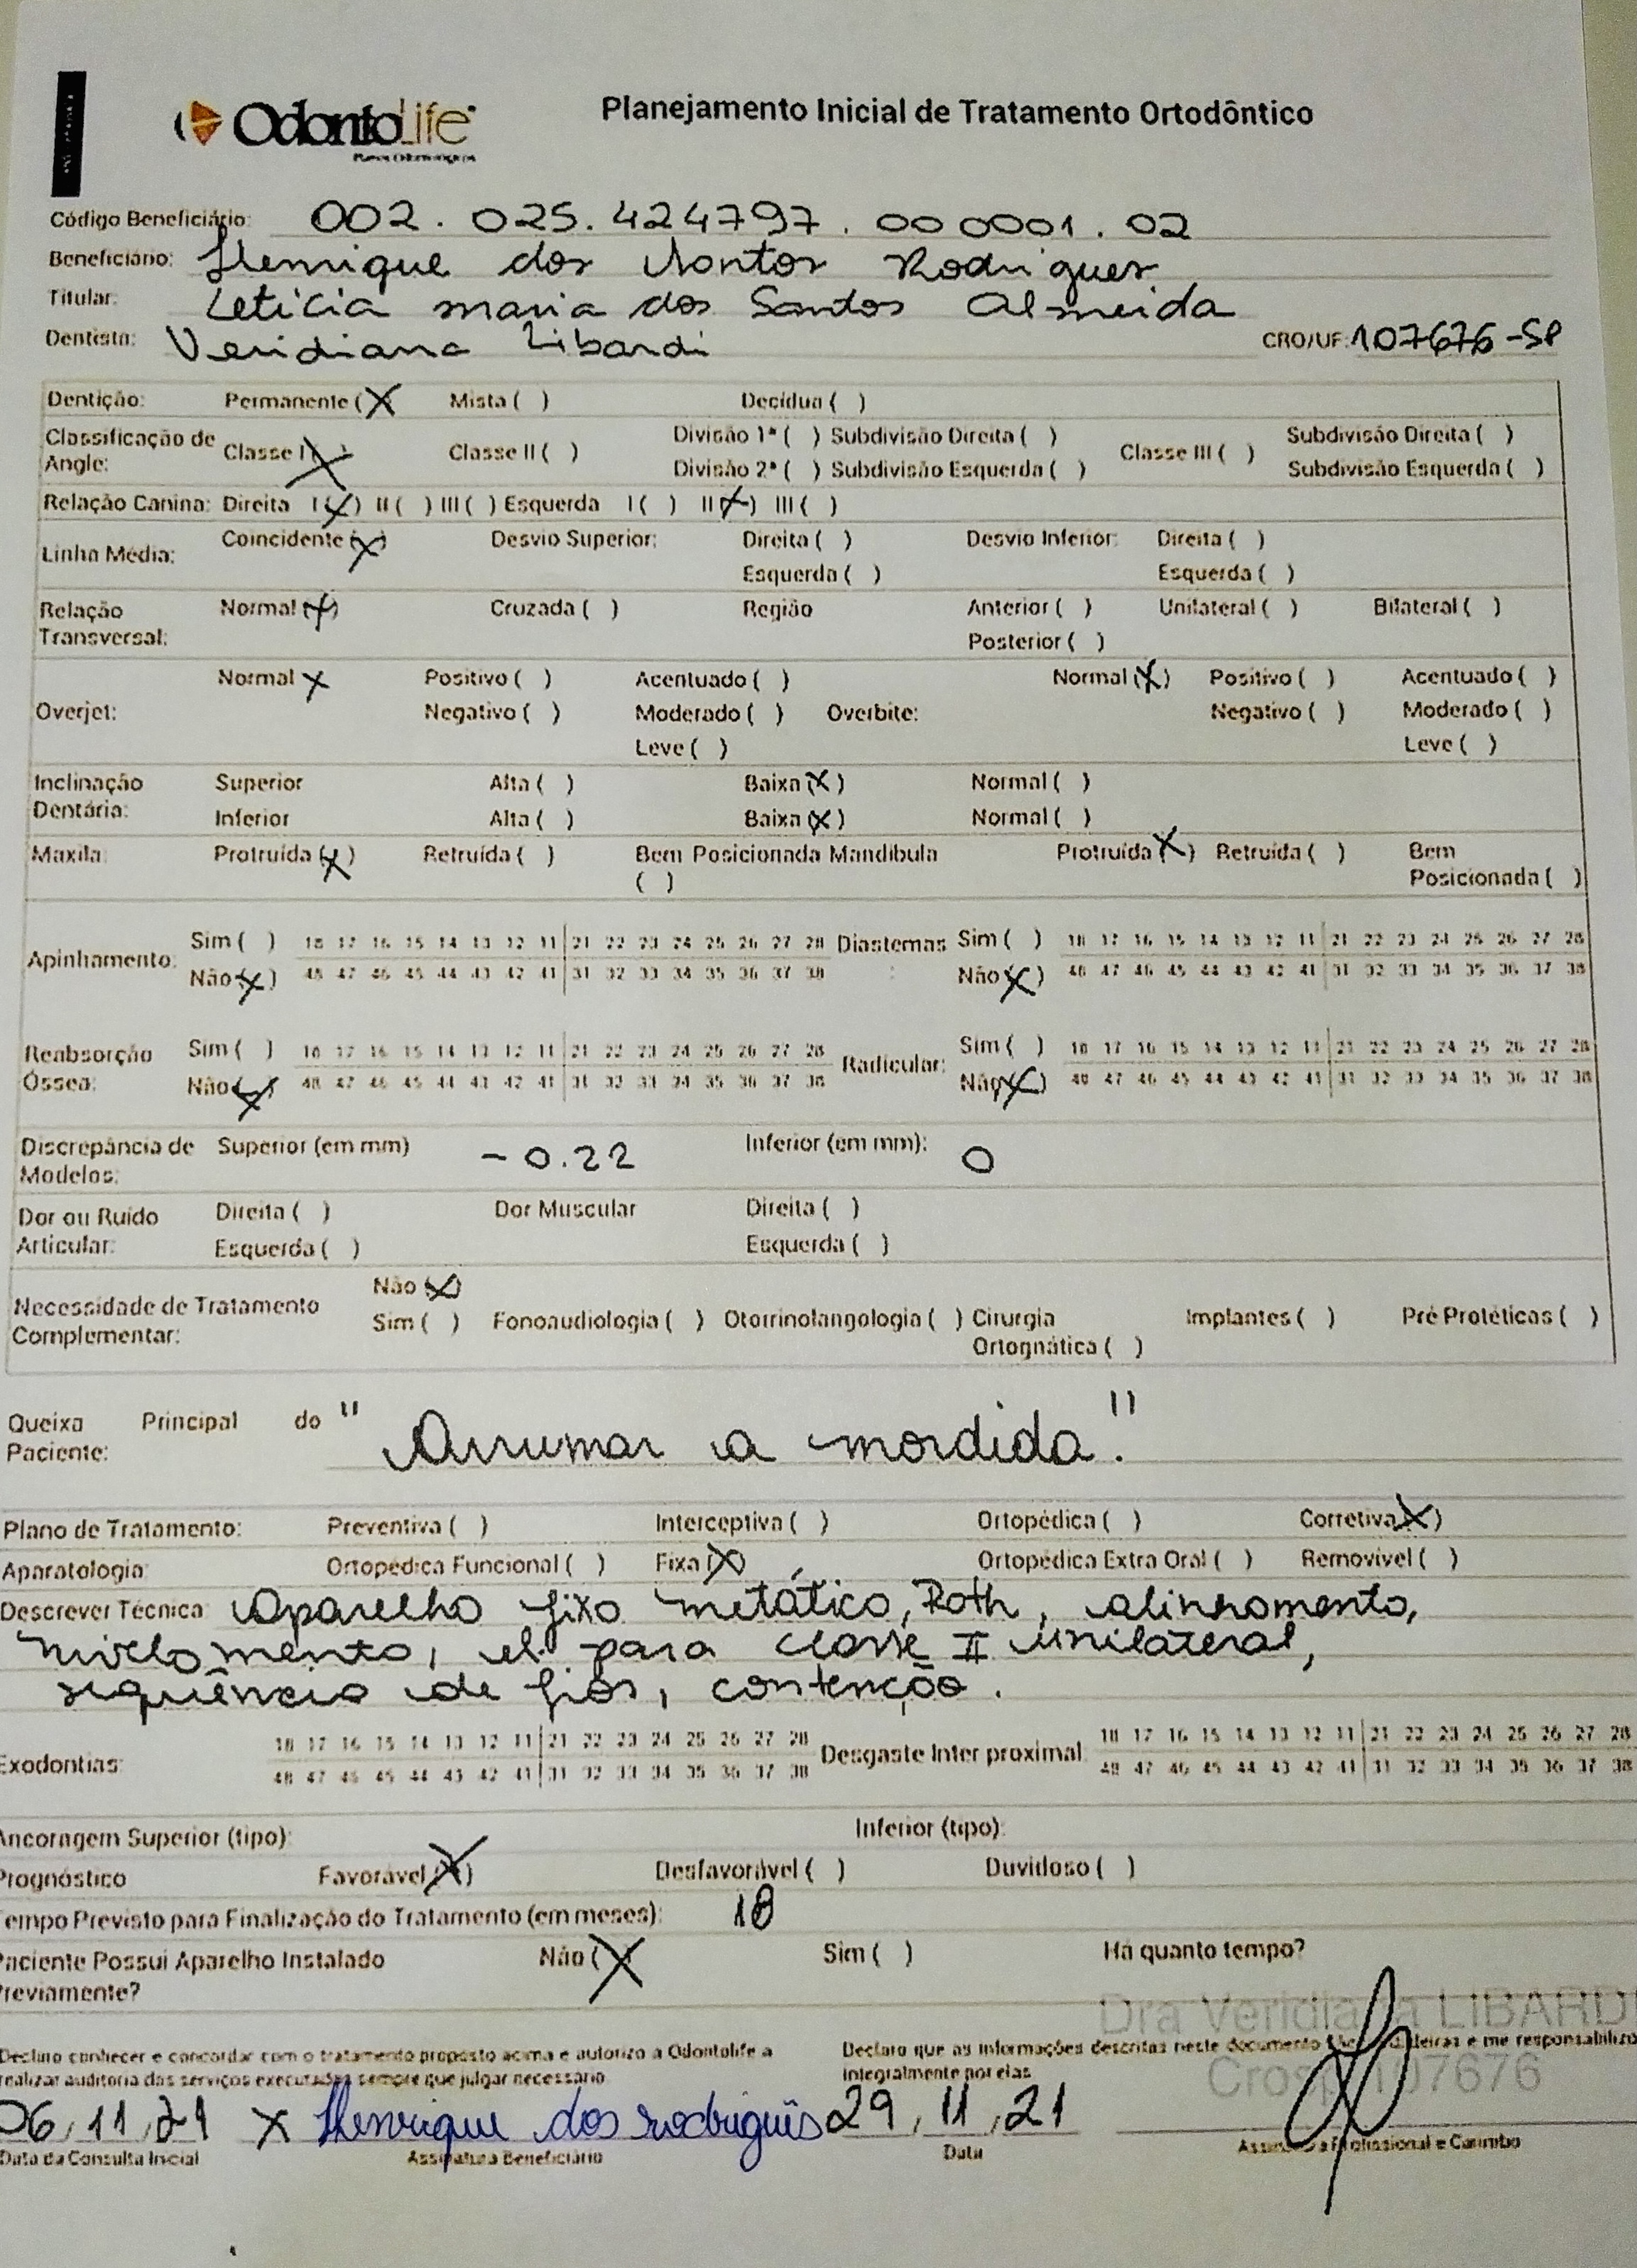 OdontoLife
Planos Odontológicos
Planejamento Inicial de Tratamento Ortodôntico
Código Beneficiário: 002.025.424797.000001.02
Beneficiário: Henrique dos Santos Rodrigues
Titular: Letícia maria dos Santos Almeida
Dentista: Veridiana Libardi CRO/UF: 107676-SP
Dentição: Permanente (X) Mista ( ) Decídua ( )
Classificação de Angle: Classe I (X) Classe II ( ) Divisão 1ª ( ) Subdivisão Direita ( ) Classe III ( ) Subdivisão Direita ( )
Divisão 2ª ( ) Subdivisão Esquerda ( ) Subdivisão Esquerda ( )
Relação Canina: Direita I (X) II ( ) III ( ) Esquerda I ( ) II (X) III ( )
Linha Média: Coincidente (X) Desvio Superior: Direita ( ) Desvio Inferior: Direita ( )
Esquerda ( ) Esquerda ( )
Relação Transversal: Normal (X) Cruzada ( ) Região Anterior ( ) Unilateral ( ) Bilateral ( )
Posterior ( )
Normal X Positivo ( ) Acentuado ( ) Normal (X) Positivo ( ) Acentuado ( )
Overjet: Negativo ( ) Moderado ( ) Overbite: Negativo ( ) Moderado ( )
Leve ( ) Leve ( )
Inclinação Dentária: Superior Alta ( ) Baixa (X) Normal ( )
Inferior Alta ( ) Baixa (X) Normal ( )
Maxila: Protruída (X) Retruída ( ) Bem Posicionada ( ) Mandíbula Protruída (X) Retruída ( ) Bem Posicionada ( )
Apinhamento: Sim ( ) 18 17 16 15 14 13 12 11 21 22 23 24 25 26 27 28 Diastemas: Sim ( ) 18 17 16 15 14 13 12 11 21 22 23 24 25 26 27 28
Não (X) 48 47 46 45 44 43 42 41 31 32 33 34 35 36 37 38 Não (X) 48 47 46 45 44 43 42 41 31 32 33 34 35 36 37 38
Reabsorção Óssea: Sim ( ) 18 17 16 15 14 13 12 11 21 22 23 24 25 26 27 28 Radicular: Sim ( ) 18 17 16 15 14 13 12 11 21 22 23 24 25 26 27 28
Não (X) 48 47 46 45 44 43 42 41 31 32 33 34 35 36 37 38 Não (X) 48 47 46 45 44 43 42 41 31 32 33 34 35 36 37 38
Discrepância de Modelos: Superior (em mm) -0.22 Inferior (em mm): 0
Dor ou Ruído Articular: Direita ( ) Dor Muscular Direita ( )
Esquerda ( ) Esquerda ( )
Não (X)
Necessidade de Tratamento Complementar: Sim ( ) Fonoaudiologia ( ) Otorrinolangologia ( ) Cirurgia Ortognática ( ) Implantes ( ) Pré Protéticas ( )
Queixa Principal do Paciente: "Arrumar a mordida."
Plano de Tratamento: Preventiva ( ) Interceptiva ( ) Ortopédica ( ) Corretiva (X)
Aparatologia: Ortopédica Funcional ( ) Fixa (X) Ortopédica Extra Oral ( ) Removível ( )
Descrever Técnica: Aparelho fixo metático, Roth, alinhamento,
nivelamento, el para classe II unilateral,
sequência de fios, contenção.
Exodontias: 18 17 16 15 14 13 12 11 21 22 23 24 25 26 27 28 Desgaste Inter proximal: 18 17 16 15 14 13 12 11 21 22 23 24 25 26 27 28
48 47 46 45 44 43 42 41 31 32 33 34 35 36 37 38 48 47 46 45 44 43 42 41 31 32 33 34 35 36 37 38
Ancoragem Superior (tipo): Inferior (tipo):
Prognóstico Favorável (X) Desfavorável ( ) Duvidoso ( )
Tempo Previsto para Finalização do Tratamento (em meses): 18
Paciente Possui Aparelho Instalado Previamente? Não (X) Sim ( ) Há quanto tempo?
Dra Veridiana LIBARDI
Crosp 107676
Declaro conhecer e concordar com o tratamento proposto acima e autorizo a Odontolife a
realizar auditoria dos serviços executados sempre que julgar necessário
Declaro que as informações descritas neste documento são verdadeiras e me responsabilizo
integralmente por elas
06,11,21 X Henrique dos rodriguês 29,11,21
Data da Consulta Inicial Assinatura Beneficiário Data Assinatura Profissional e Carimbo